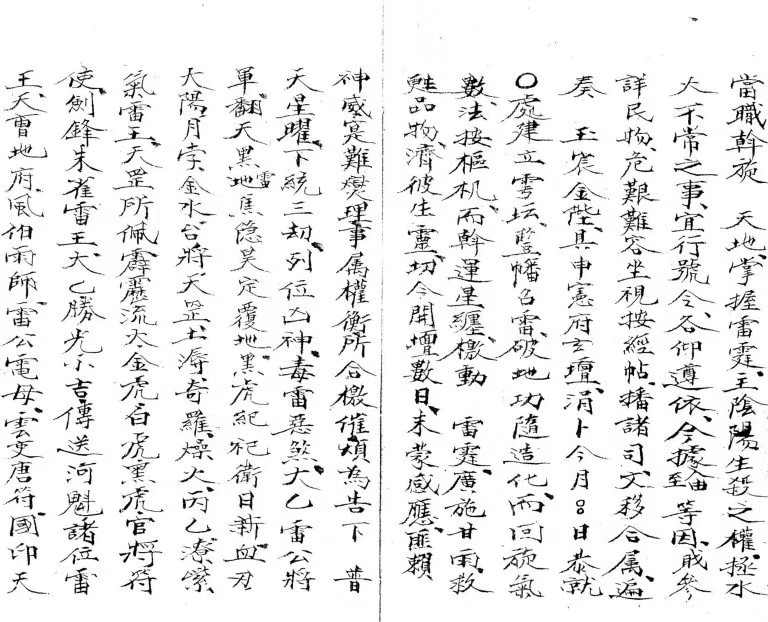 當職斡旋　天地掌握雷霆主陰陽生殺之權拯水
火不常之事宜行號令各仰遵依今據 等因戝參
詳民物危艱難容坐視按經帖播諸司文移合属遍
奏　玉宸金陛具申憲府玄壇涓卜今月〇日恭就
〇處建立雩坛豎幡召雷破地功隨造化而回旋氣
數法按樞机而斡運星纏檄動　雷霆廣施甘雨救
甦品物濟彼生靈切今開壇數日未蒙感應匪賴
神威寔難爕理事属權衡所合檄催煩為告下　普
天星曜下統三刼列位凶神毒雷惡煞大乙雷公將
軍翻天黑地雷焦隐昊定覆地黑虎紀祀衛日新血刃
太陽月孛金水台將天罡土海奇羅燥火丙乙潦縈
氣雷王天罡所佩霹靂流大金虎白虎黑虎官將符
使劍鋒朱雀雷王大乙勝光小吉傳送河魁諸位雷
王天曹地府風伯雨師雷公電母雲吏唐符國印天